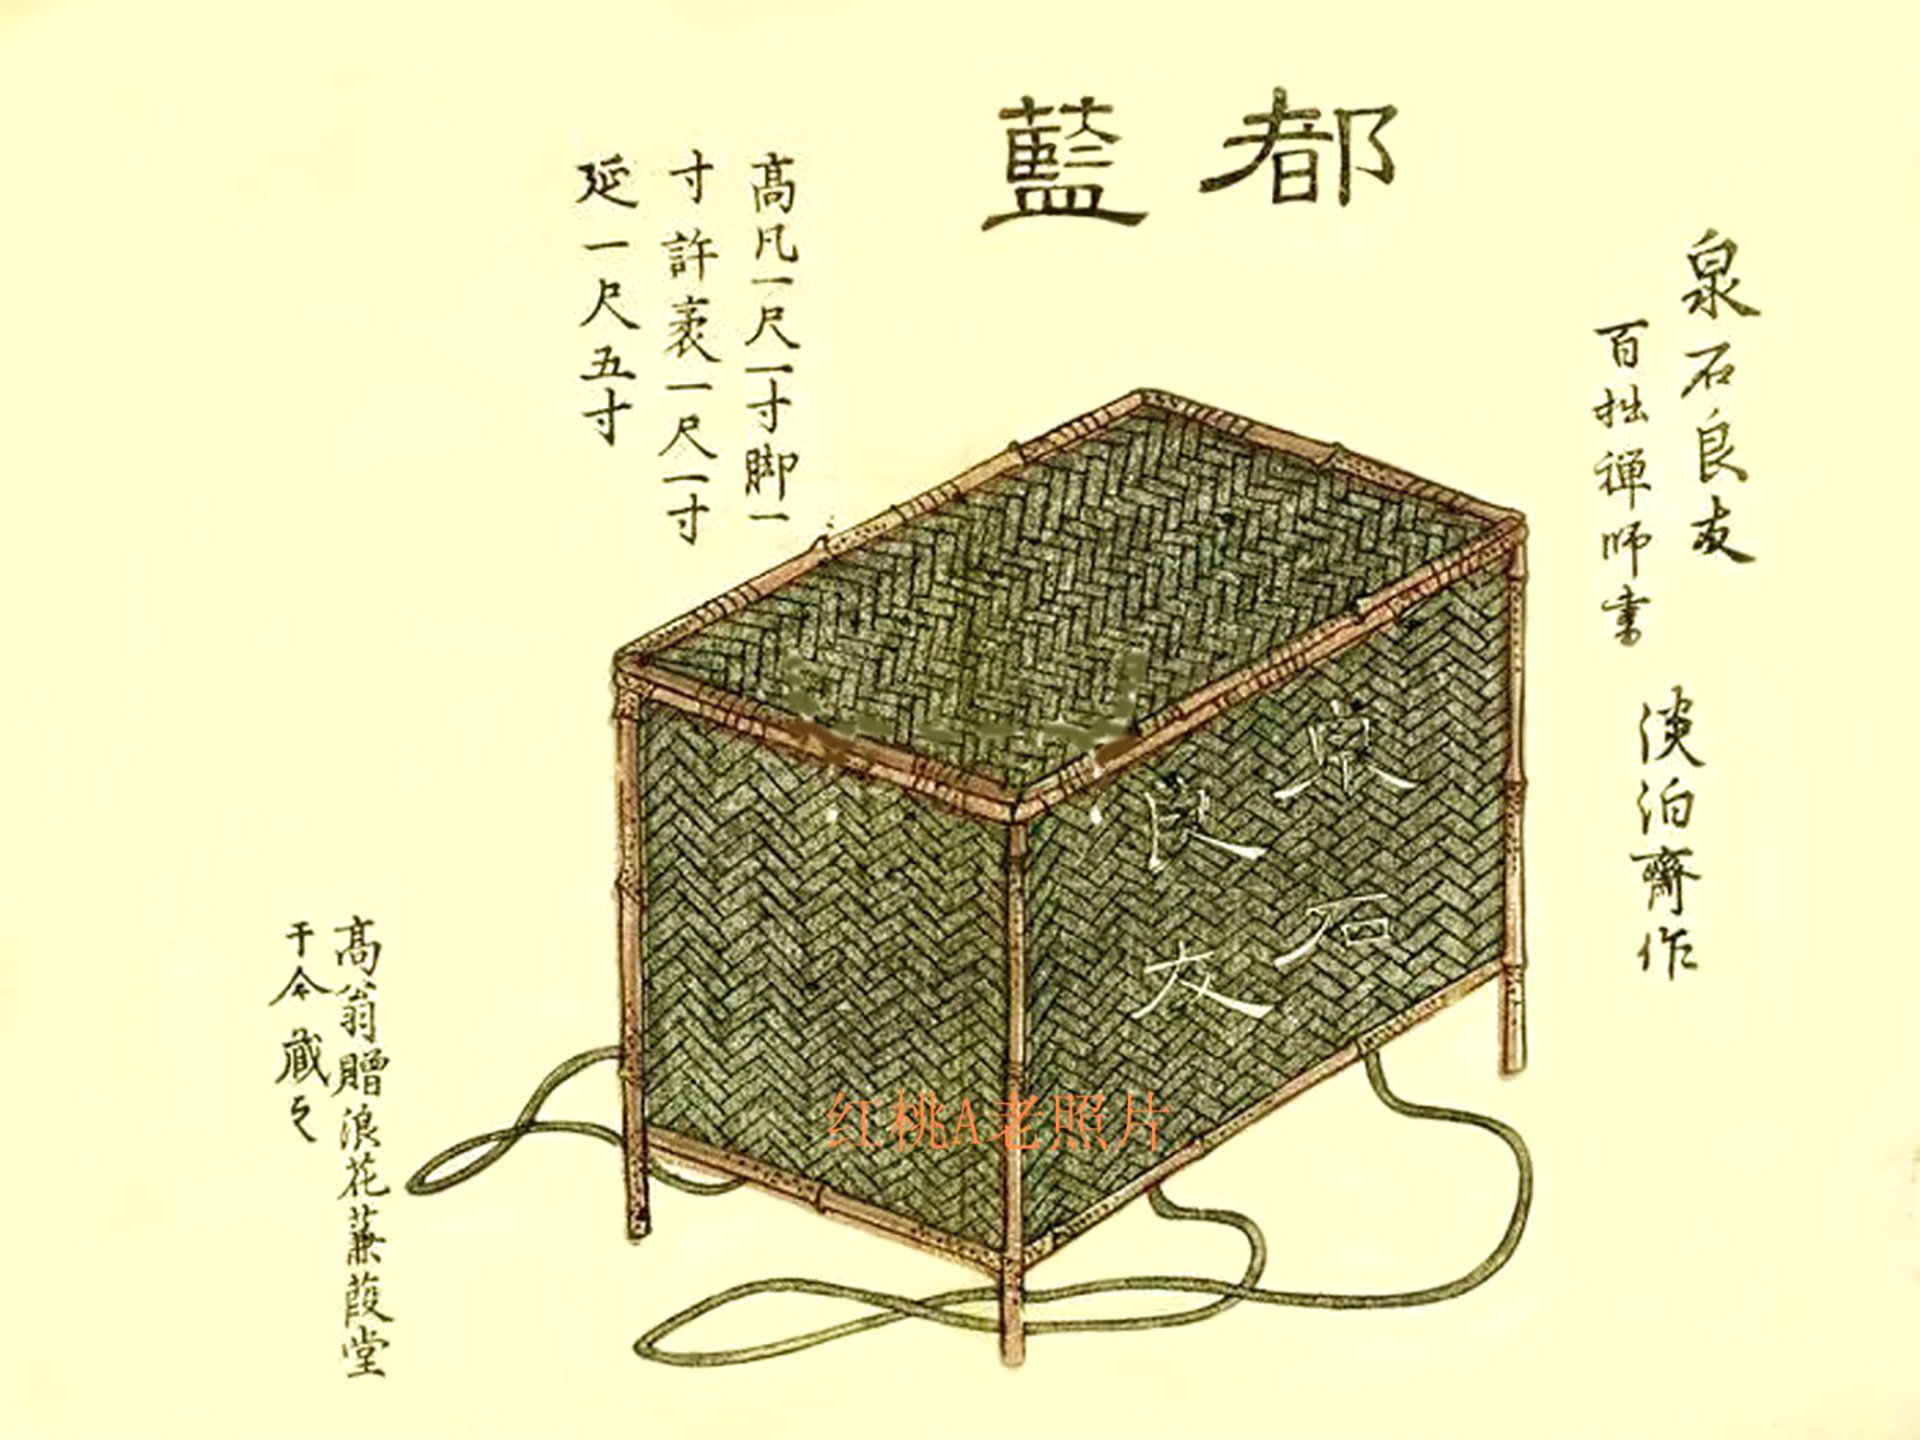 都藍
泉石良友
百拙禅师書
淡泊齋作
高凡一尺一寸脚一
寸許袤一尺一寸
延一尺五寸
泉石
良友
高翁贈浪花蒹葭堂
于今藏之
红桃A老照片